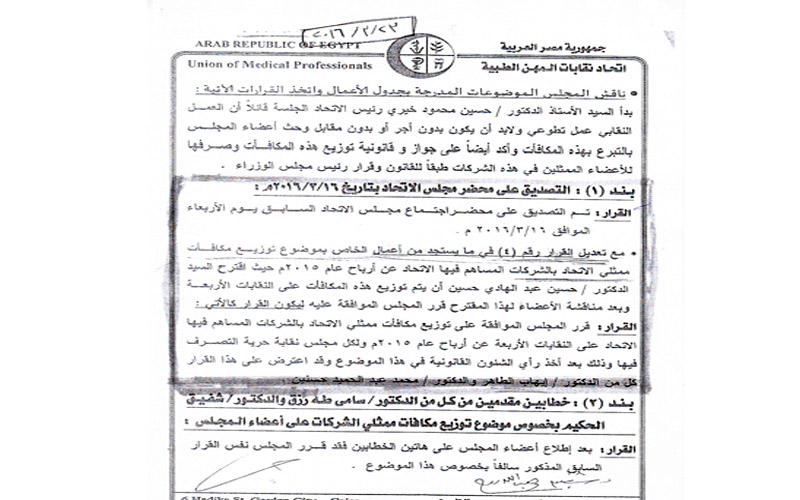 ٢٠١٦/٣/٢٣
ARAB REPUBLIC OF EGYPT
جمهورية مصر العربية
Union of Medical Professionals
اتحاد نقابات المهن الطبية
• ناقش المجلس الموضوعات المدرجة بجدول الأعمال واتخذ القرارات الآتية :
بدأ السيد الأستاذ الدكتور / حسين محمود خيري رئيس الاتحاد الجلسة قائلاً أن العمل
النقابي عمل تطوعي ولابد أن يكون بدون أجر أو بدون مقابل وحث أعضاء المجلس
بالتبرع بهذه المكافآت وأكد أيضاً على جواز و قانونية توزيع هذه المكافآت وصرفها
للأعضاء الممثلين في هذه الشركات طبقاً للقانون وقرار رئيس مجلس الوزراء .
بند (١) : التصديق على محضر مجلس الاتحاد بتاريخ ٢٠١٦/٣/١٦م :
القرار : تم التصديق على محضر اجتماع مجلس الاتحاد السابق يوم الأربعاء
الموافق ٢٠١٦/٣/١٦ م .
• مع تعديل القرار رقم (٤) في ما يستجد من أعمال الخاص بموضوع توزيع مكافآت
ممثلي الاتحاد بالشركات المساهم فيها الاتحاد عن أرباح عام ٢٠١٥م حيث اقترح السيد
الدكتور / حسين عبد الهادي حسين أن يتم توزيع هذه المكافآت على النقابات الأربعة
وبعد مناقشة الأعضاء لهذا المقترح قرر المجلس الموافقة عليه ليكون القرار كالآتي :
القرار : قرر المجلس الموافقة على توزيع مكافآت ممثلي الاتحاد بالشركات المساهم فيها
الاتحاد على النقابات الأربعة عن أرباح عام ٢٠١٥م ولكل مجلس نقابة حرية التصرف
فيها وذلك بعد أخذ رأي الشئون القانونية في هذا الموضوع وقد اعترض على هذا القرار
كل من الدكتور / إيهاب الطاهر والدكتور / محمد عبد الحميد حسنين .
بند (٢) : خطابين مقدمين من كل من الدكتور / سامى طه رزق والدكتور / شفيق
الحكيم بخصوص موضوع توزيع مكافآت ممثلي الشركات على أعضاء المجلس :
القرار : بعد إطلاع أعضاء المجلس على هاتين الخطابين فقد قرر المجلس نفس القرار
السابق المذكور سالفاً بخصوص هذا الموضوع .